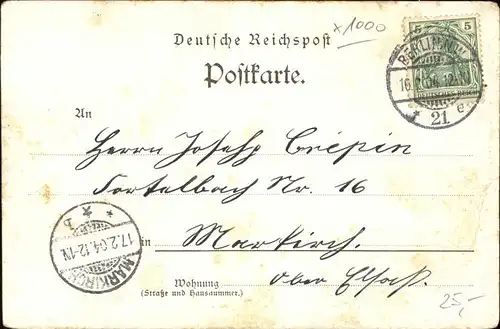 x1000
Deutsche Reichspost
Postkarte.
5 5
DEUTSCHES REICH
BERLIN
21 e
An
Herrn Joseph Crépin
Fortelbach Nr. 16
in Markirch
Ober Elsaß.
Wohnung
(Straße und Hausnummer.)
MARKIRCH
17.2.04.12-1N.
b
25,-